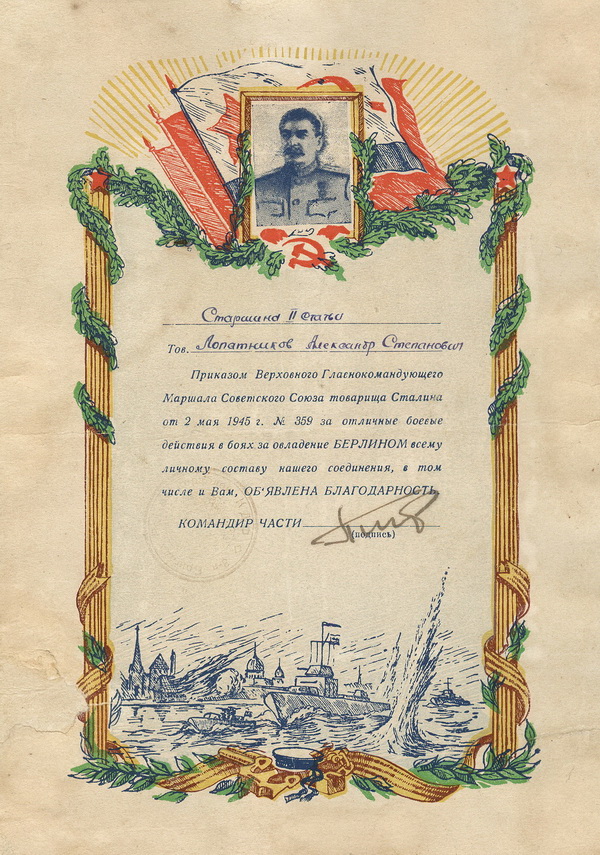 Старшина II статьи
Тов. Лопатников Александр Степанович
Приказом Верховного Гласнокомандующего
Маршала Советского Союза товарища Сталина
от 2 мая 1945 г. № 359 за отличные боевые
действия в боях за овладение БЕРЛИНОМ всему
личному составу нашего соединения, в том
числе и Вам, ОБ'ЯВЛЕНА БЛАГОДАРНОСТЬ.
КОМАНДИР ЧАСТИ
(подпись)